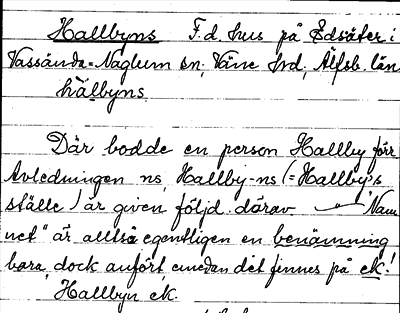 Hallbyns F.d. hus på Edsäter i
Vassända-Naglum sn; Väne hrd, Älfsb. län.
hälbyns
Där bodde en person Hallby förr
Avledningen ns, Hallby-ns (= Hallby's
ställe) är given följd därav — "Nam
net" är alltså egentligen en benämning
bara, dock anfört, emedan det finnes på ek!
Hallbyn ek.